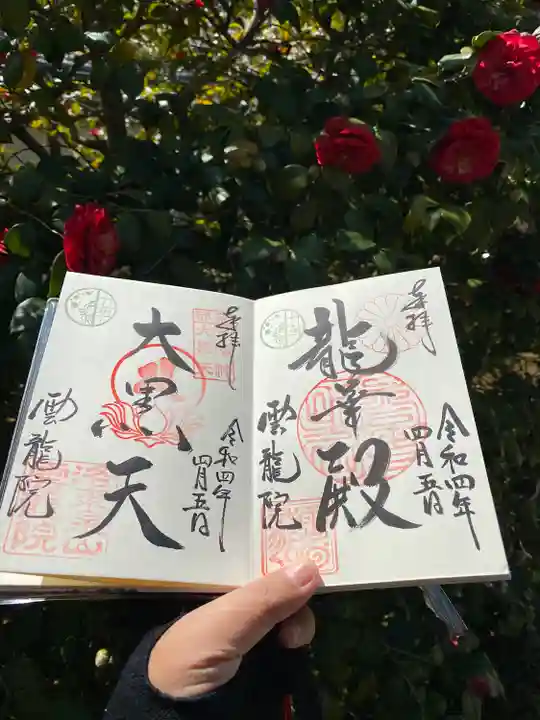 奉拝
龍華殿
令和四年
四月五日
雲龍院
奉拝
大黒天
令和四年
四月五日
雲龍院